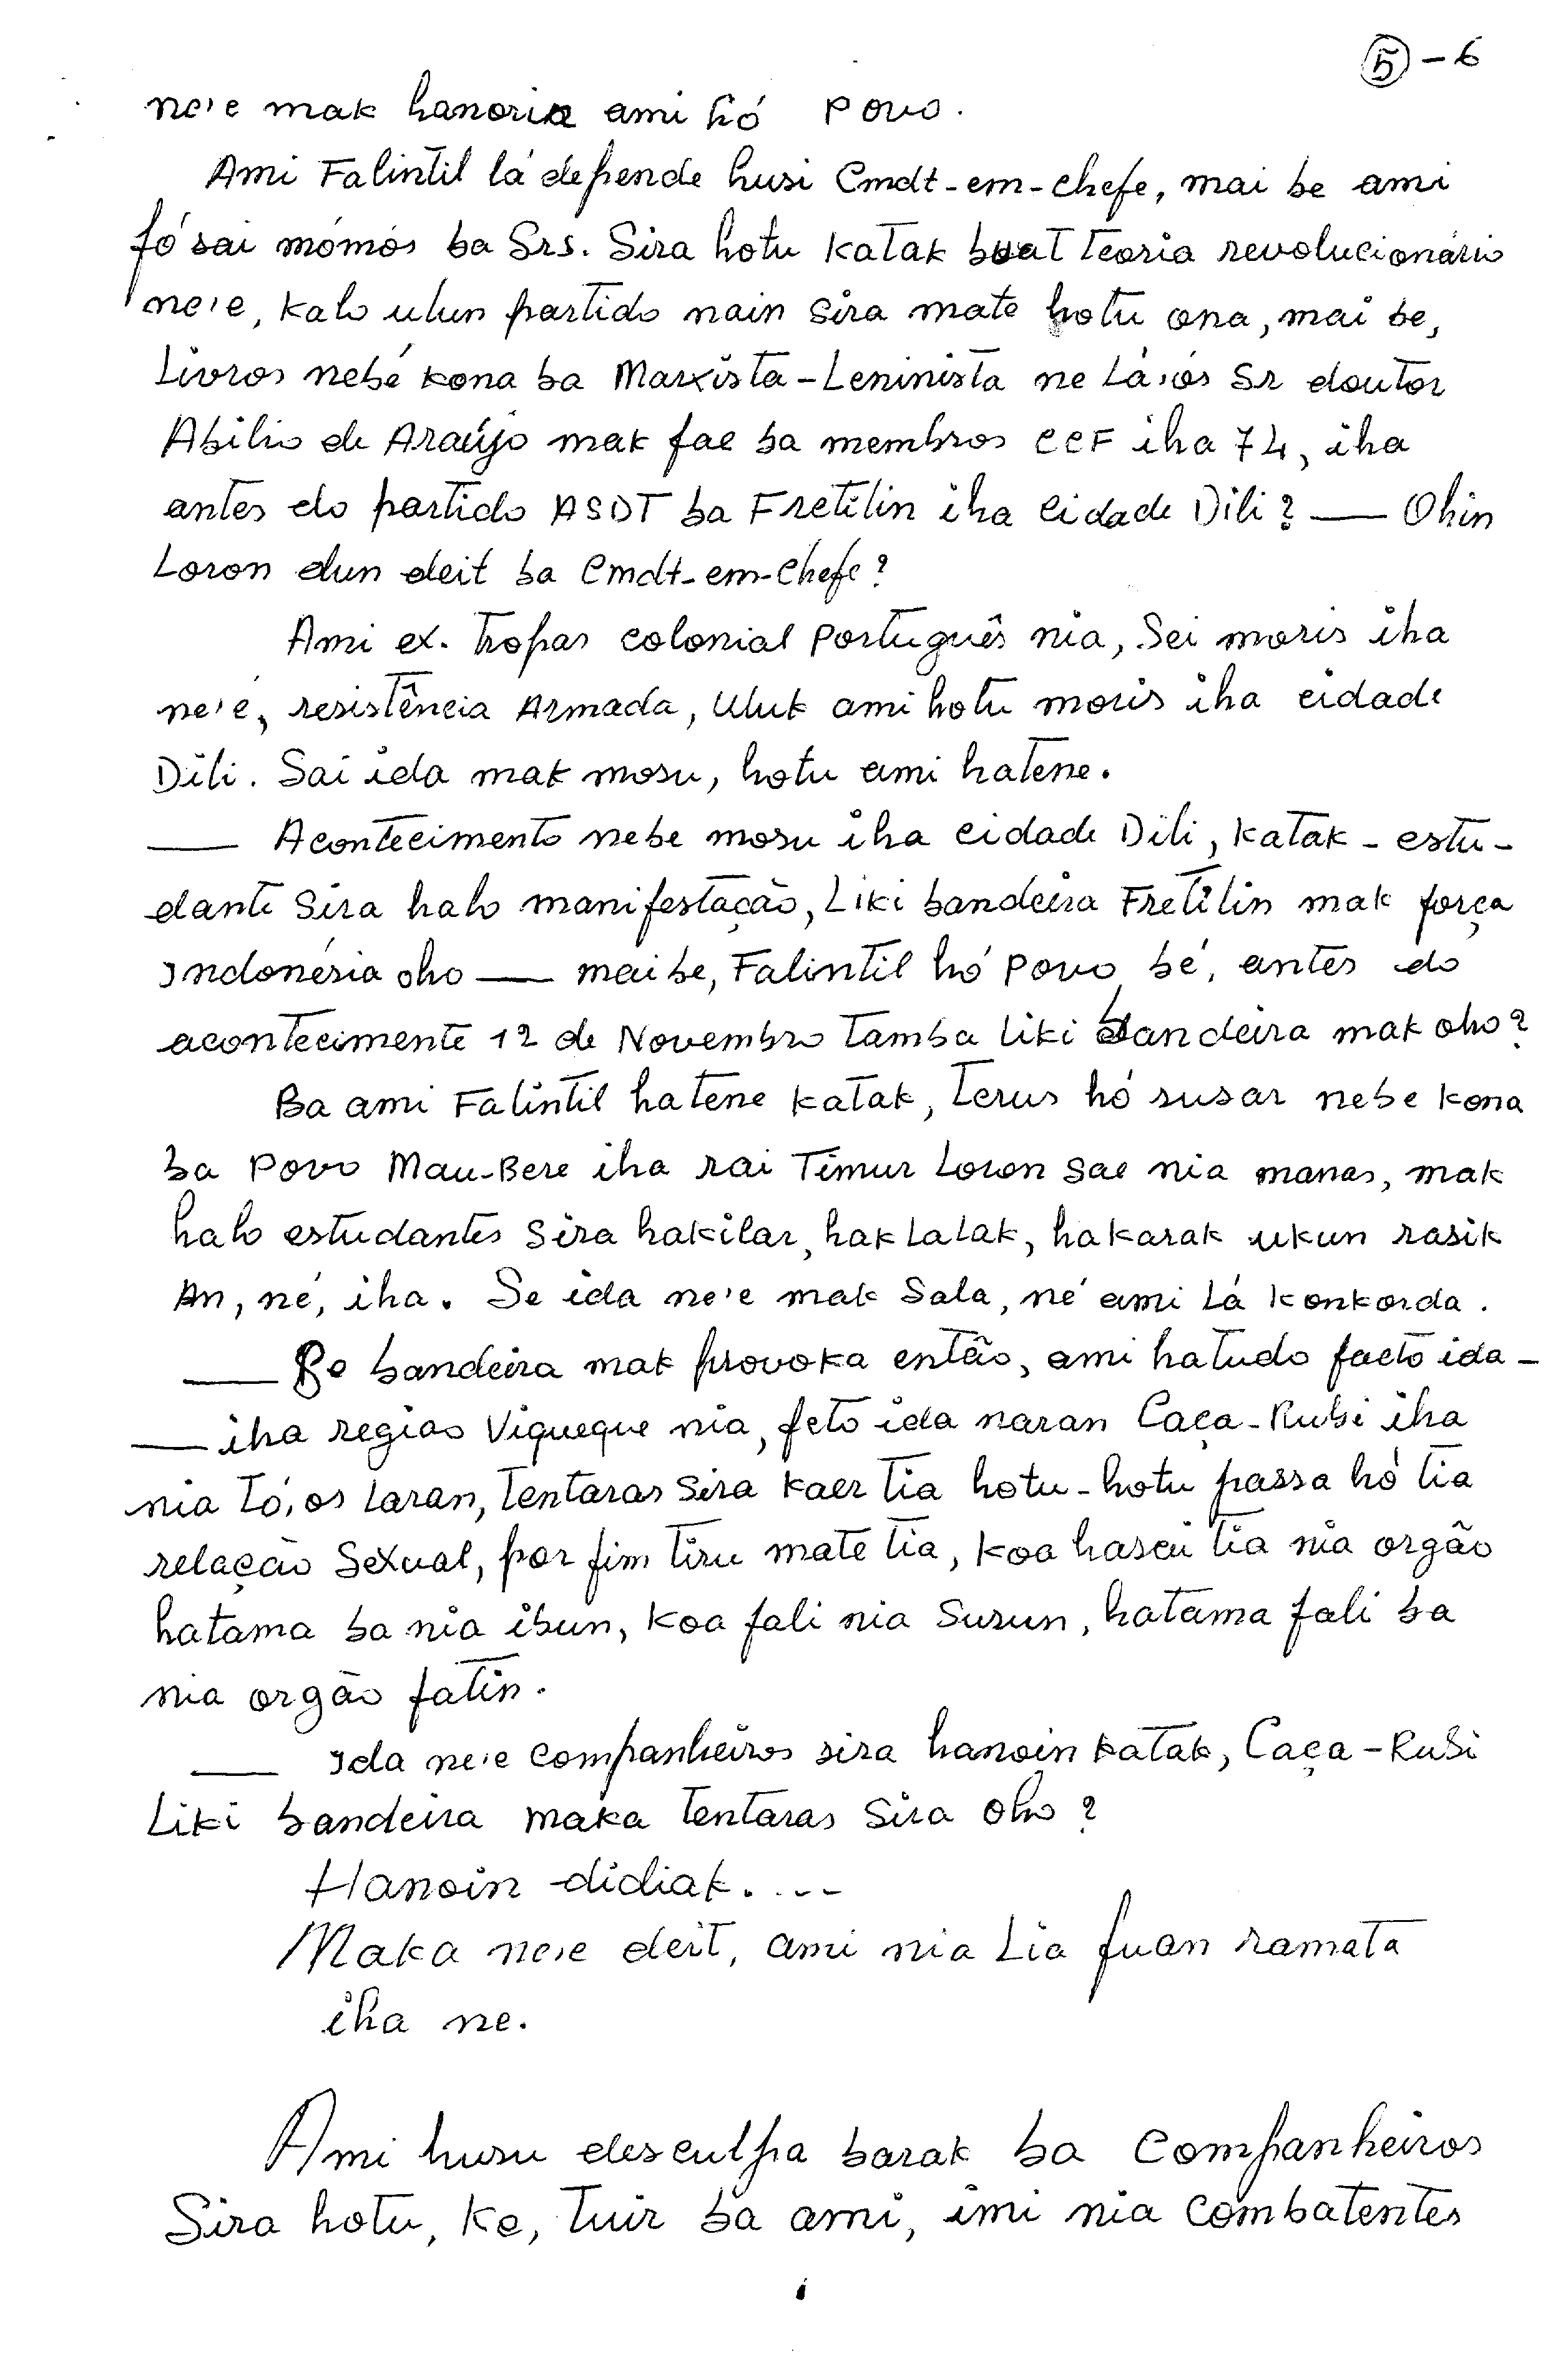 5 - 6
ne'e mak hanorin ami hó povo.
Ami Falintil lá depende husi Cmdt-em-chefe, mai be ami
fó sai mómós ba Srs. Sira hotu katak buat teoria revolucionário
ne'e, kalo ulun partido nain sira mate hotu ona, mai be,
Livros nebé kona ba Marxista-Leninista ne Lá, ós Sr doutor
Abilio de Araújo mak fae ba membros CCF iha 74, iha
antes do partido ASDT ba Fretilin iha cidade Dili? — Ohin
Loron dun deit ba Cmdt-em-Chefe?
Ami ex. Tropas colonial Português nia, Sei moris iha
ne'é, resistência Armada, Uluk ami hotu moris iha cidade
Dili. Sai ida mak mosu, hotu ami hatene.
— Acontecimento nebe mosu iha cidade Dili, katak - estu-
dante Sira halo manifestação, Liki bandeira Fretilin mak força
Indonésia oho — mai be, Falintil hó Povo bé, antes do
acontecimente 12 de Novembro tamba liki bandeira mak oho?
Ba ami Falintil hatene katak, Terus hó susar nebe kona
ba Povo Mau-Bere iha rai Timur Loron sae nia manas, mak
halo estudantes Sira hakilar, hak Lalak, hakarak ukun rasik
An, né, iha. Se ida ne'e mak Sala, né ami Lá konkorda.
— Se bandeira mak provoka então, ami hatudo facto ida -
— iha regias Viqueque nia, feto ida naran Caça-Rubi iha
nia Tó, os Laran, Tentaras Sira kaer tia hotu-hotu passa hó tia
relação Sexual, por fim Tiru mate tia, koa hasai tia nia orgão
hatama ba nia ibun, koa fali nia Susun, hatama fali ba
nia orgão fatin.
— Ida ne'e companheiros sira hanoin katak, Caça-Rubi
Liki bandeira maka Tentaras Sira oho?
Hanoin didiak....
Maka ne'e deit, ami nia Lia fuan ramata
iha ne.
Ami husu desculpa barak ba Companheiros
Sira hotu, Ke, Tuir ba ami, imi nia Combatentes